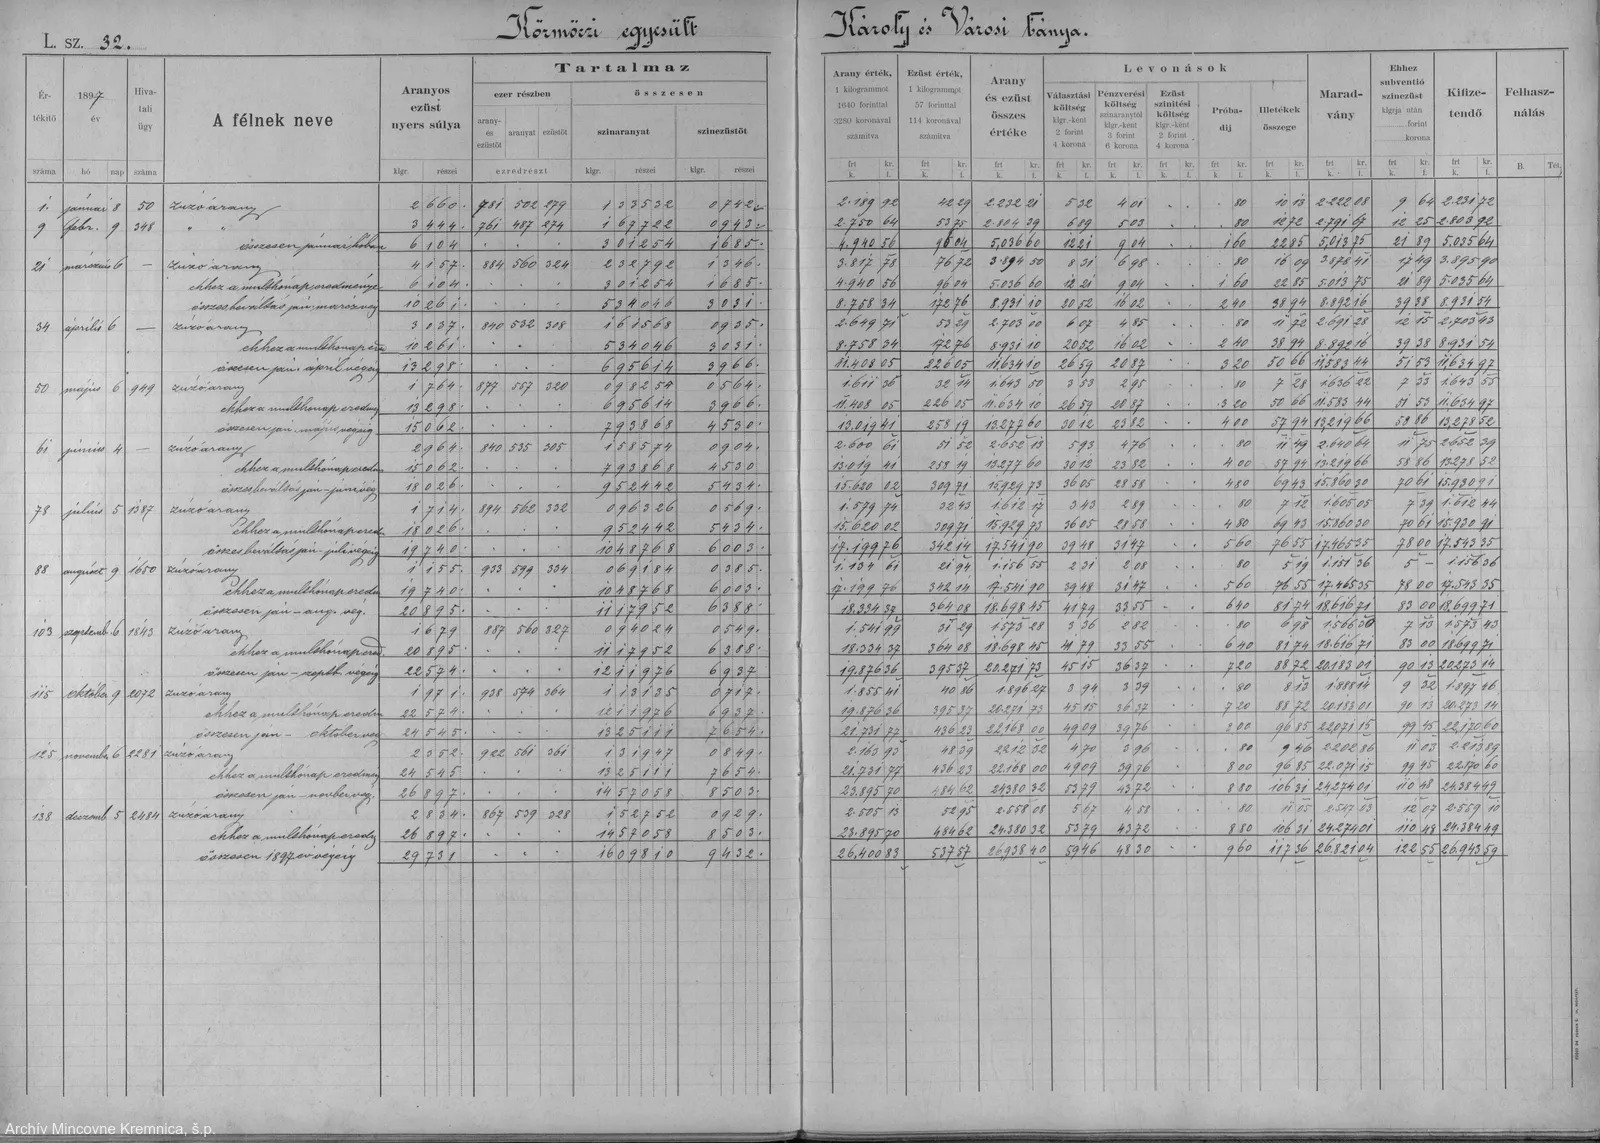 L. sz. 32.
Körmöczi egyesült
Károly és Városi bánya.
Értékitő száma
1897 év
hó nap
Hivatali ügy száma
A félnek neve
Aranyos ezüst nyers súlya
klgr. részei
Tartalmaz
ezer részben
arany- és ezüstöt aranyat ezüstöt
ezredrészt
összesen
szinaranyat szinezüstöt
klgr. részei klgr. részei
Arany érték, 1 kilogrammot 1640 forinttal 3280 koronával számitva
Ezüst érték, 1 kilogrammot 57 forinttal 114 koronával számitva
Arany és ezüst összes értéke
Levonások
Választási költség klgr.-ként 2 forint 4 korona
Pénzverési költség szinaranytól klgr.-ként 3 forint 6 korona
Ezüst szinitési költség klgr.-ként 2 forint 4 korona
Próbadij
Illetékek összege
Maradvány
Ehhez subventió szinezüst klgrja után forint korona
Kifizetendő
Felhasználás
frt kr.
k. f.
B. Tét.
1. januari 8 50 zúzóarany 2 660 781 502 279 1 33532 0 742 2.189 92 42 29 2.232 21 5 32 4 01 80 10 13 2.222 08 9 64 2.231 72
9 febr. 9 348 " " 3 444 761 487 274 1 67722 0 943 2.750 64 53 75 2.804 39 6 89 5 03 80 12 72 2.791 67 12 25 2.803 92
6 104 3 01254 1 685 4.940 56 96 04 5.036 60 12 21 9 04 1 60 22 85 5.013 75 21 89 5.035 64
21 marczius 6 — zúzóarany 4 157 884 560 324 2 32792 1 346 3.817 78 76 72 3.894 50 8 31 6 98 80 16 09 3.878 41 17 49 3.895 90
ehhez a multhónap eredménye 6 104 3 01254 1 685 4.940 56 96 04 5.036 60 12 21 9 04 1 60 22 85 5.013 75 21 89 5.035 64
10 261 5 34046 3 031 8.758 34 172 76 8.931 10 20 52 16 02 2 40 38 94 8.892 16 39 38 8.931 54
34 április 6 — zúzóarany 3 037 840 532 308 1 61568 0 935 2.649 71 53 29 2.703 00 6 07 4 85 80 11 72 2.691 28 12 15 2.703 43
10 261 5 34046 3 031 8.758 34 172 76 8.931 10 20 52 16 02 2 40 38 94 8.892 16 39 38 8.931 54
összesen jan.-april végéig 13 298 6 95614 3 966 11.408 05 226 05 11.634 10 26 59 20 87 3 20 50 66 11.583 44 51 53 11.634 97
50 május 6 949 zúzóarany 1 764 877 557 320 0 98254 0 564 1.611 36 32 14 1.643 50 3 53 2 95 80 7 28 1.636 22 7 33 1.643 55
13 298 6 95614 3 966 11.408 05 226 05 11.634 10 26 59 20 87 3 20 50 66 11.583 44 51 53 11.634 97
összesen jan.-május végéig 15 062 7 93868 4 530 13.019 41 258 19 13.277 60 30 12 23 82 4 00 57 94 13.219 66 58 86 13.278 52
61 június 4 — zúzóarany 2 964 840 535 305 1 58574 0 904 2.600 61 51 52 2.652 13 5 93 4 76 80 11 49 2.640 64 11 75 2.652 39
15 062 7 93868 4 530 13.019 41 258 19 13.277 60 30 12 23 82 4 00 57 94 13.219 66 58 86 13.278 52
18 026 9 52442 5 434 15.620 02 309 71 15.929 73 36 05 28 58 4 80 69 43 15.860 30 70 61 15.930 91
78 július 5 1387 zúzóarany 1 714 894 562 332 0 96326 0 569 1.579 74 32 43 1.612 17 3 43 2 89 80 7 12 1.605 05 7 39 1.612 44
18 026 9 52442 5 434 15.620 02 309 71 15.929 73 36 05 28 58 4 80 69 43 15.860 30 70 61 15.930 91
19 740 10 48768 6 003 17.199 76 342 14 17.541 90 39 48 31 47 5 60 76 55 17.465 35 78 00 17.543 35
88 auguszt 9 1650 zúzóarany 1 155 933 599 334 0 69184 0 385 1.134 61 21 94 1.156 55 2 31 2 08 80 5 19 1.151 36 5 — 1.156 36
19 740 10 48768 6 003 17.199 76 342 14 17.541 90 39 48 31 47 5 60 76 55 17.465 35 78 00 17.543 35
összesen jan – aug. vég. 20 895 11 17952 6 388 18.334 37 364 08 18.698 45 41 79 33 55 6 40 81 74 18.616 71 83 00 18.699 71
103 szeptemb. 6 1843 zúzóarany 1 679 887 560 327 0 94024 0 549 1.541 99 31 29 1.573 28 3 36 2 82 80 6 98 1.566 30 7 13 1.573 43
20 895 11 17952 6 388 18.334 37 364 08 18.698 45 41 79 33 55 6 40 81 74 18.616 71 83 00 18.699 71
összesen jan – szeptb. végéig 22 574 12 11976 6 937 19.876 36 395 37 20.271 73 45 15 36 37 7 20 88 72 20.183 01 90 13 20.273 14
115 október 9 2072 zúzóarany 1 971 938 574 364 1 13135 0 717 1.855 41 40 86 1.896 27 3 94 3 39 80 8 13 1.888 14 9 32 1.897 46
22 574 12 11976 6 937 19.876 36 395 37 20.271 73 45 15 36 37 7 20 88 72 20.183 01 90 13 20.273 14
összesen jan – október vég 24 545 13 25111 7 654 21.731 77 436 23 22.168 00 49 09 39 76 8 00 96 85 22.071 15 99 45 22.170 60
125 novemb. 6 2281 zúzóarany 2 352 922 561 361 1 31947 0 849 2.163 93 48 39 2.212 32 4 70 3 96 80 9 46 2.202 86 11 03 2.213 89
24 545 13 25111 7 654 21.731 77 436 23 22.168 00 49 09 39 76 8 00 96 85 22.071 15 99 45 22.170 60
összesen jan – novber vég. 26 897 14 57058 8 503 23.895 70 484 62 24.380 32 53 79 43 72 8 80 106 31 24.274 01 110 48 24.384 49
138 deczemb 5 2484 zúzóarany 2 834 867 539 328 1 52752 0 929 2.505 13 52 95 2.558 08 5 67 4 58 80 11 05 2.547 03 12 07 2.559 10
26 897 14 57058 8 503 23.895 70 484 62 24.380 32 53 79 43 72 8 80 106 31 24.274 01 110 48 24.384 49
összesen 1897 év végéig 29 731 16 09810 9 432 26.400 83 537 57 26.938 40 59 46 48 30 9 60 117 36 26.821 04 122 55 26.943 59
Archív Mincovne Kremnica, š.p.